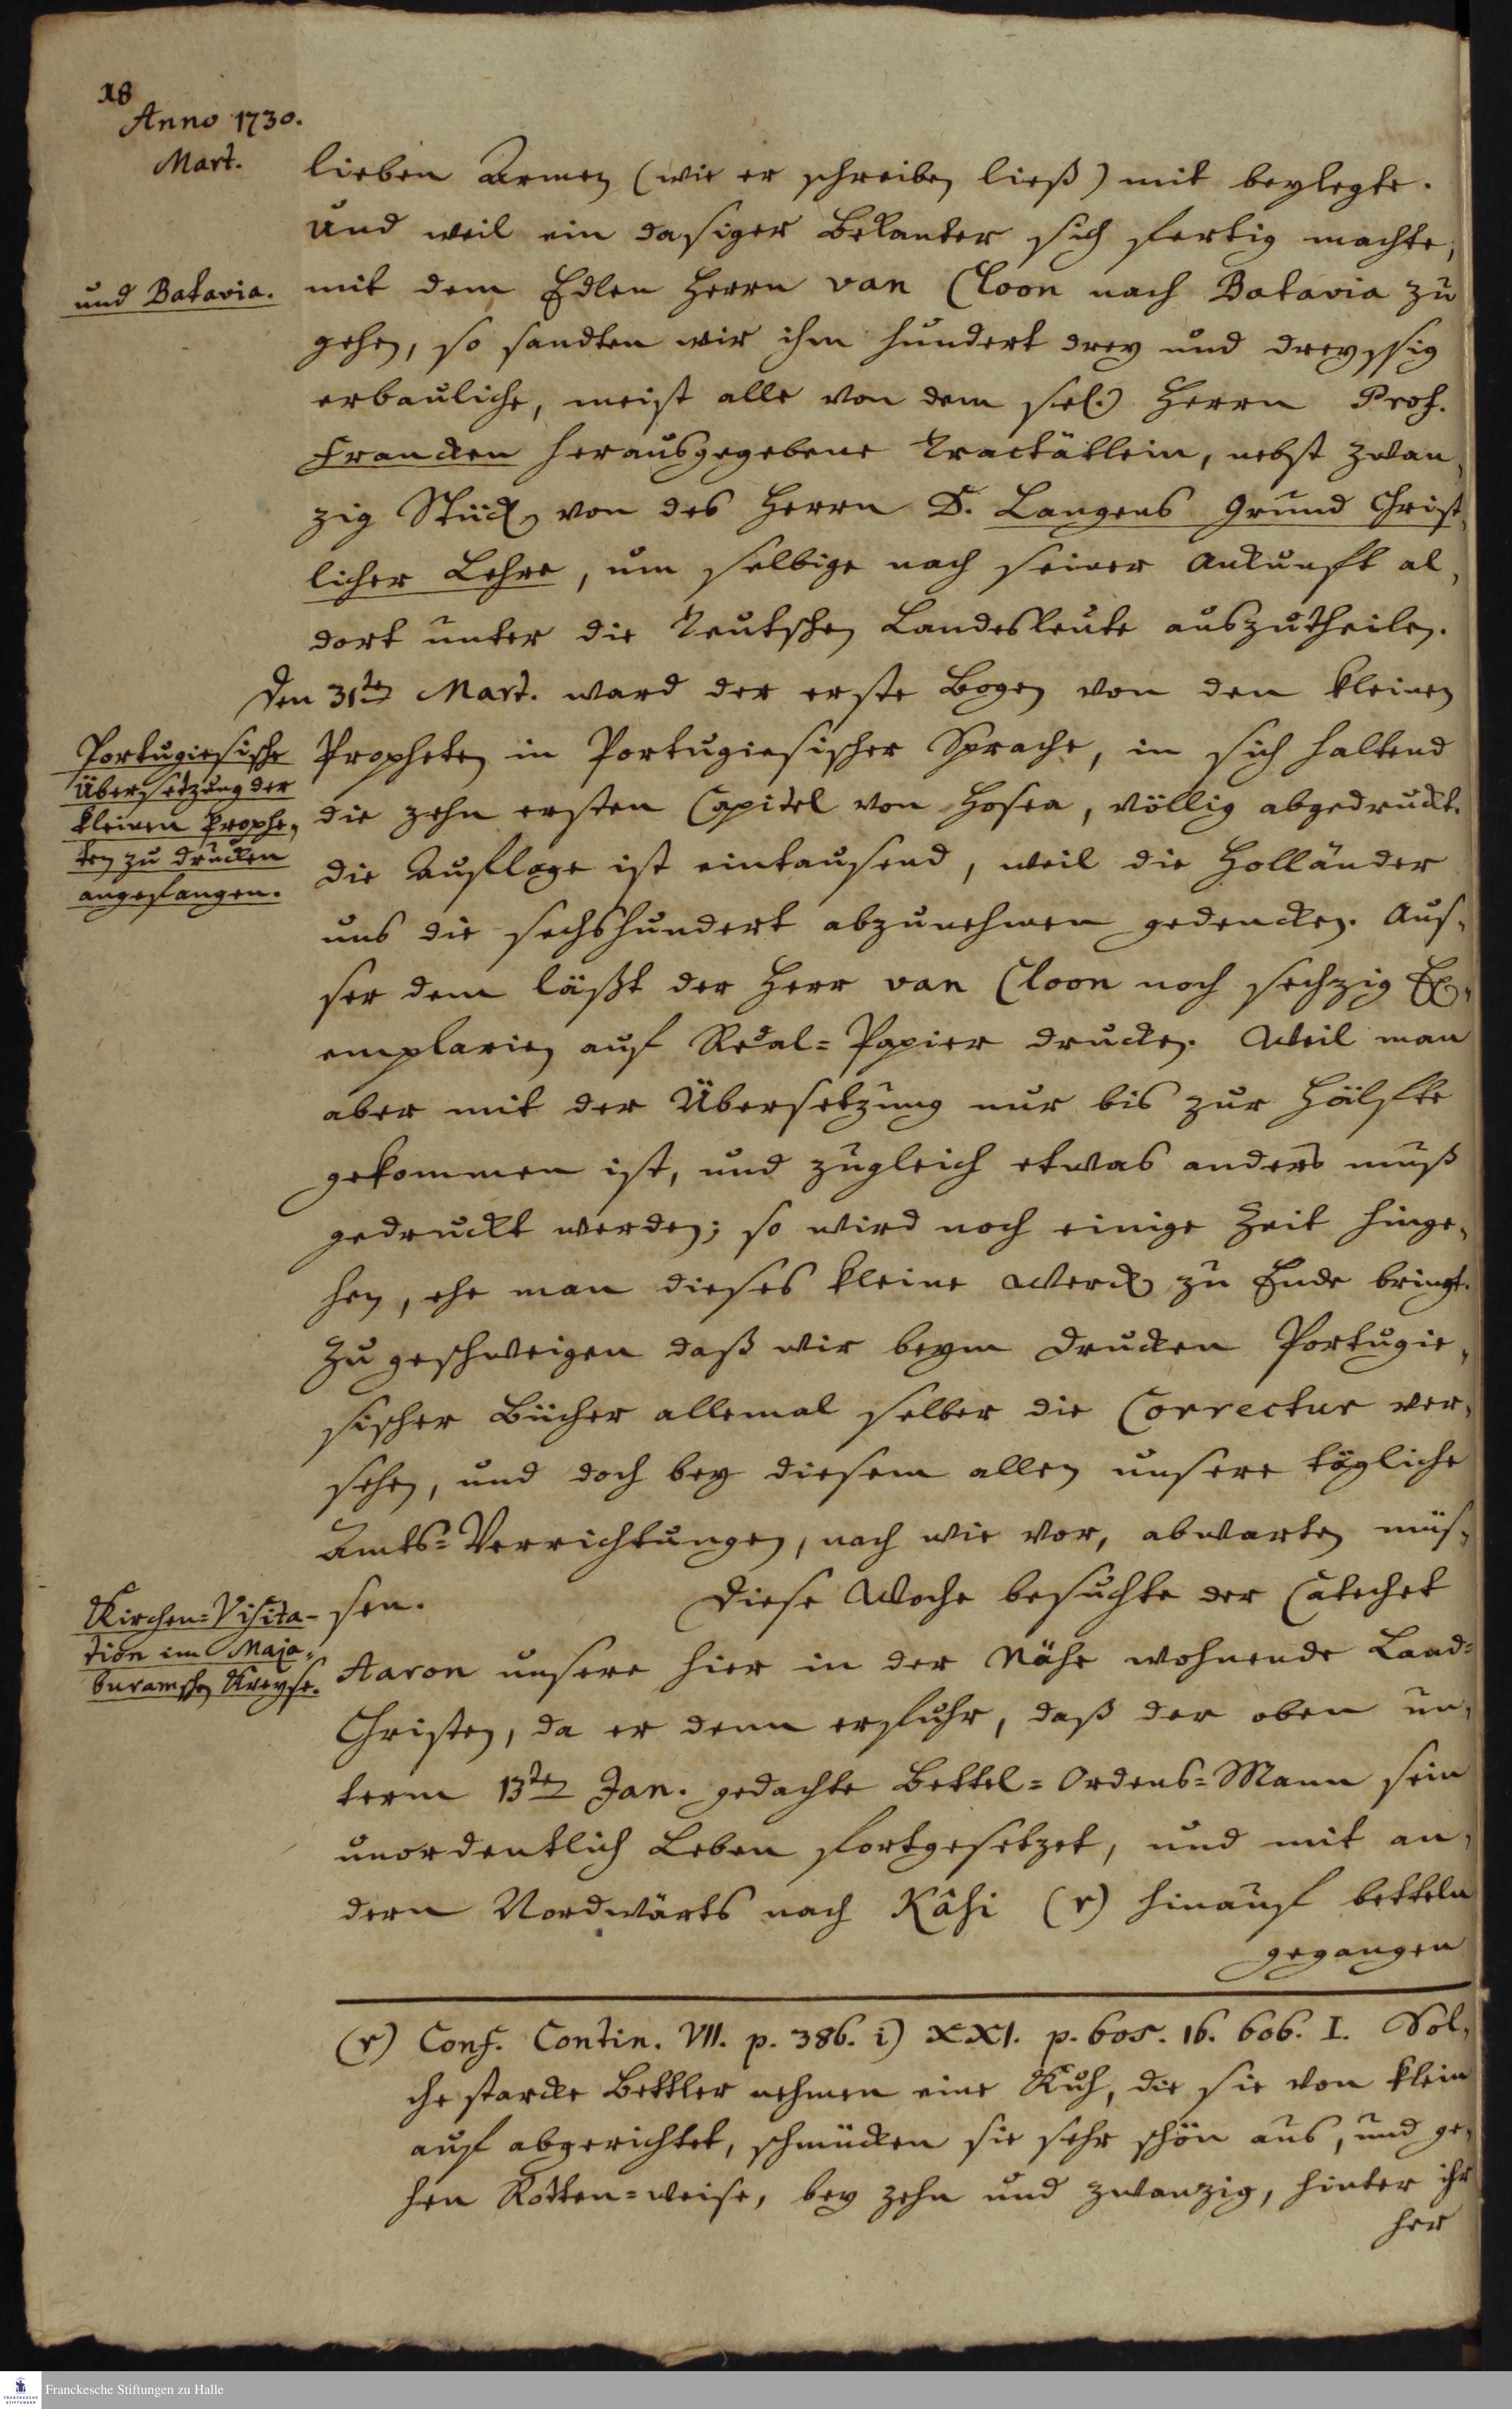 18
Anno 1730.
Mart.
lieben Armen (wie er schreiben ließ) mit beylegte.
Und weil ein dasiger Bekanter sich fertig machte,
und Batavia.
mit dem Edlen Herrn van Cloon nach Batavia zu
gehen, so sandten wir ihm hundert drey und dreyssig
erbauliche, meist alle von dem sel. Herrn Prof.
Francken herausgegebene Tractätlein, nebst zwan,
zig Stück von des Herrn D. Langens Grund Christ,
licher Lehre, um selbige nach seiner Ankunft al,
dort unter die Teutschen Landesleute auszutheilen.
Den 31ten Mart. ward der erste Bogen von den kleinen
Portugiesische
Übersetzung der
kleinen Prophe,
ten zu drucken
angefangen.
Propheten in Portugiesischer Sprache, in sich haltend
die zehn ersten Capitel von Hosea, völlig abgedruckt.
die Auflage ist eintausend, weil die Holländer
uns die sechshundert abzunehmen gedencken. Aus,
ser dem läßt der Herr van Cloon noch sechzig Ex,
emplarien auf Real=Papier drucken. Weil man
aber mit der Übersetzung nur bis zur Hälfte
gekommen ist, und zugleich etwas anders muß
gedruckt werden; so wird noch einige Zeit hinge,
hen, ehe man dieses kleine Werck zu Ende bringt.
Zu geschweigen daß wir beym Drucken Portugie,
sischer Bücher allemal selber die Correctur ver,
sehen, und doch bey diesem allen unsere tägliche
Amts=Verrichtungen, nach wie vor, abwarten müs,
sen. Diese Woche besuchte der Catechet
Kirchen=Visita-
tion im Maja,
buramschen Kreyse.
Aaron unsere hier in der Nähe wohnende Land=
Christen, da er denn erfuhr, daß der oben un,
term 13ten Jan. gedachte Bettel=Ordens=Mann sein
unordentlich Leben fortgesetzet, und mit an,
dern Nordwärts nach Kâsi (r) hinauf betteln
gegangen
(r) Conf. Contin. VII. p. 386. i) XXI. p. 605. 16. 606. I. Sol,
che starcke Bettler nehmen eine Kuh, die sie von klein
auf abgerichtet, schmücken sie sehr schön aus, und ge,
hen Rotten=weise, bey zehn und zwanzig, hinter ihr
her
Franckesche Stiftungen zu Halle